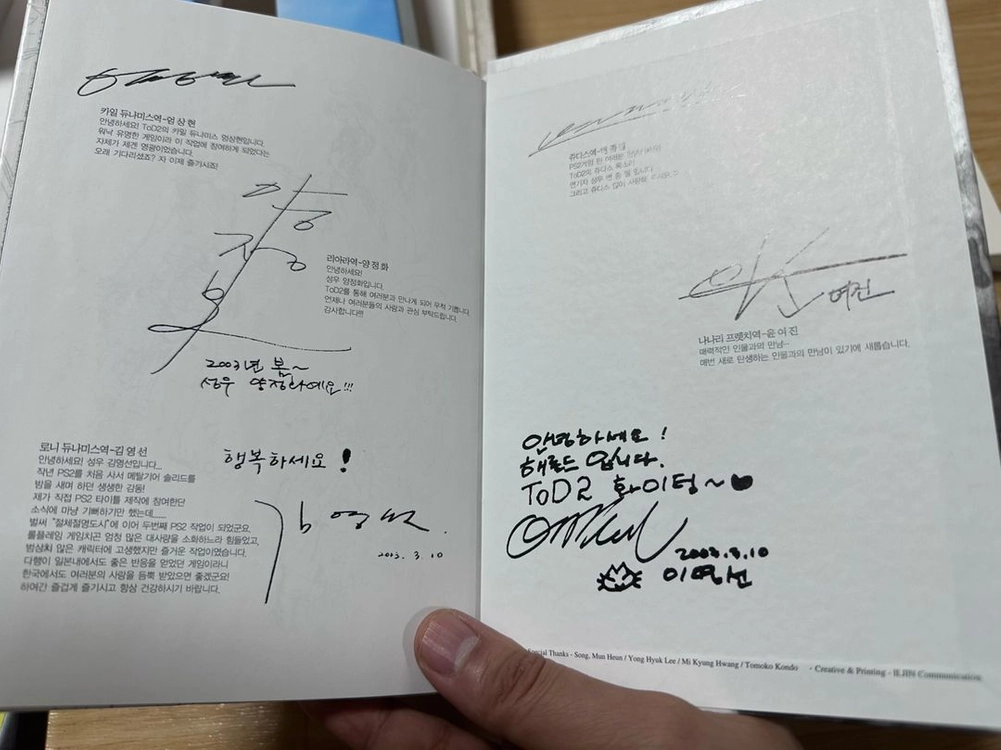 카일 듀나미스역-엄상현
안녕하세요! ToD2의 카일 듀나미스 엄상현입니다.
워낙 유명한 게임이라 이 작업에 참여하게 되었다는
자체가 제겐 영광이었습니다.
오래 기다리셨죠? 자 이제 즐기시죠!
양
정
화
리아라역-양정화
안녕하세요!
성우 양정화입니다.
ToD2를 통해 여러분과 만나게 되어 무척 기쁩니다.
언제나 여러분들의 사랑과 관심 부탁드립니다.
감사합니다!!!
2003년 봄~
성우 양정화예요!!!
로니 듀나미스역-김영선
안녕하세요! 성우 김영선입니다...
작년 PS2를 처음 사서 메탈기어 솔리드를
밤을 새며 하던 생생한 감동!
제가 직접 PS2 타이틀 제작에 참여한단
소식에 마냥 기뻐하기만 했는데...
벌써 "절체절명도시"에 이어 두번째 PS2 작업이 되었군요.
롤플레잉 게임치곤 엄청 많은 대사량을 소화하느라 힘들었고,
밤샘치 많은 캐릭터에 고생했지만 즐거운 작업이었습니다.
다행이 일본내에서도 좋은 반응을 얻었던 게임이라니
한국에서도 여러분의 사랑을 듬뿍 받았으면 좋겠군요!
하여간 즐겁게 즐기시고 항상 건강하시기 바랍니다.
행복하세요!
김영선.
2003.3.10
쥬디스역-
PS2게임 팬 여러분
ToD2의 쥬디스 목소리
연기자 성우
그리고 쥬디스 많이 사랑해
여진
나나리 프렛치역-윤여진
매력적인 인물과의 만남...
매번 새로 탄생하는 인물과의 만남이 있기에 새롭습니다.
안녕하세요!
해롤드 입니다.
ToD2 화이팅~♥
2003.3.10
이영선
Special Thanks - Song, Mun Heun / Yong Hyuk Lee / Mi Kyung Hwang / Tomoko Kondo - Creative & Printing - ILJIN Communication